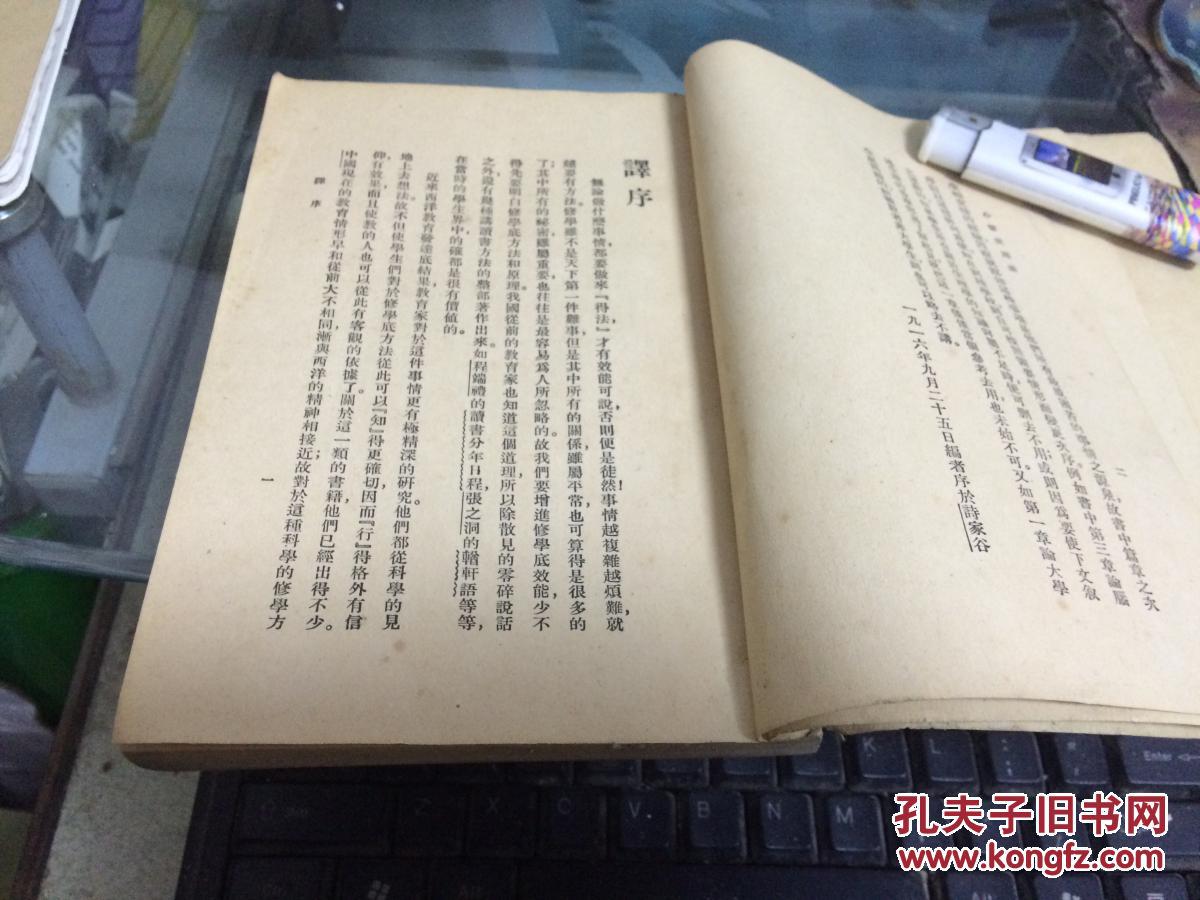 二
故書中篇章之次
例如書中第三章論腦
又如第一章論大學
略去不講。
一九一六年九月二十五日編者序於詩家谷
譯序
無論做什麽事情都要做來『得法』才有效能可說，否則便是徒然！事情越複雜越煩難，就
越要有方法。修學雖不是天下第一件難事，但是其中所有的關係雖屬平常也可算得是很多的
；其中所有的祕密雖屬重要也往往是最容易爲人所忽略的。故我們要增進修學底效能，少不
得先要明白修學底方法和原理。我國從前的教育家也知道這個道理，所以除散見的零碎說話
之外，還有幾種講讀書方法的整部著作出來。如程端禮的讀書分年日程，張之洞的輶軒語等等，
在當時的學生界中的確都是很有價值的。
近來西洋教育發達底結果，教育家對於這件事情更有極精深的研究。他們都從科學的見
地上去想法，故不但使學生們對於修學底方法從此可以『知』得更確切，因而『行』得格外有信
仰，有效果，而且使教的人也可以從此有客觀的依據了。關於這一類的書籍，他們已經出得不少。
中國現在的教育情形早和從前大不相同，漸與西洋的精神相接近；故對於這種科學的修學方
譯序
一
Enter
K
L
X
C
V
B
N
M
Alt
Ctrl
孔夫子旧书网
www.kongfz.com